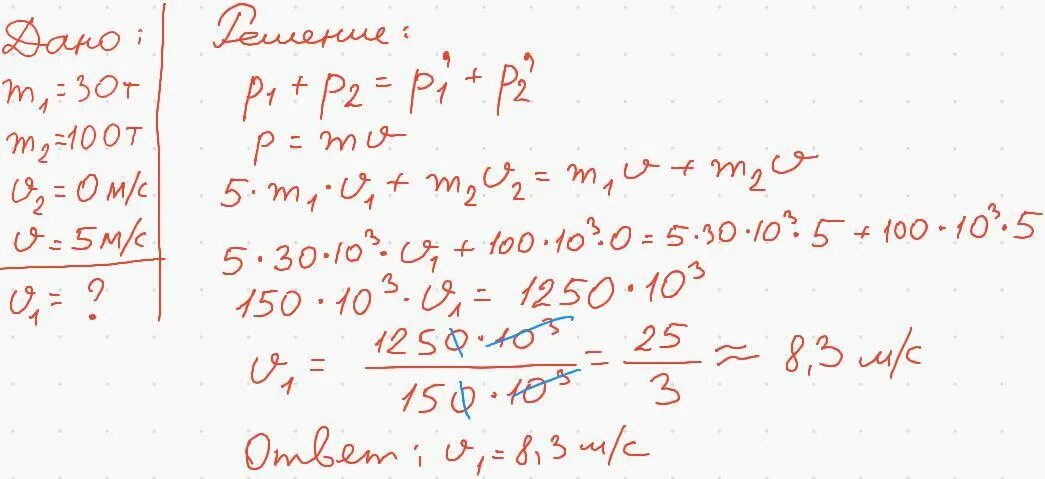 Дано:
m₁=30т
m₂=100т
υ₂=0м/с
υ=5м/с
υ₁=?
Решение:
p₁+p₂=p₁'+p₂'
p=mυ
5·m₁·υ₁+m₂υ₂=m₁υ+m₂υ
5·30·10³·υ₁+100·10³·0=5·30·10³·5+100·10³·5
150·10³·υ₁=1250·10³
υ₁= 1250·10³/150·10³ = 25/3 ≈ 8,3 м/с
Ответ: υ₁=8,3 м/с